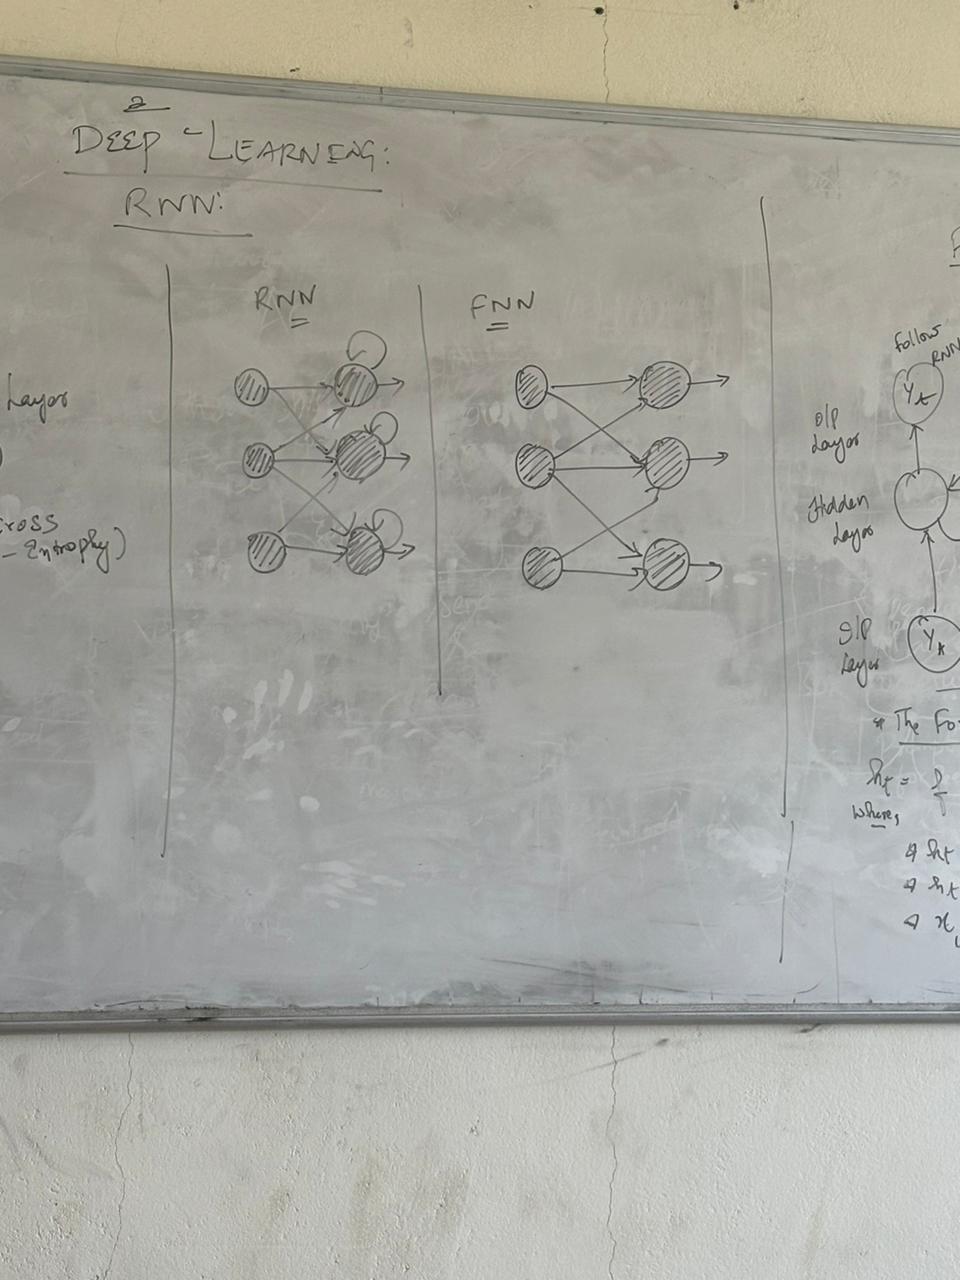 2
DEEP-LEARNING:
RNN:
Layer
Cross
- Entropy)
RNN
FNN
Follow
RNN
Yt
O/P
Layer
Hidden
Layer
I/P
Layer
* The Fo
ht =
where,
ht
ht
x